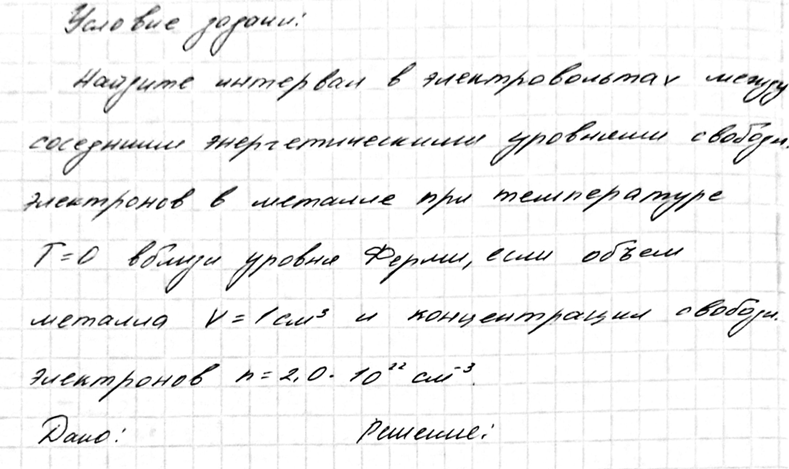 Условие задачи:
Найдите интервал в электровольтах между
соседними энергетическими уровнями свободн.
электронов в металле при температуре
T=0 вблизи уровня Ферми, если объем
металла V=1см³ и концентрация свободн.
электронов n=2,0·10²² см⁻³.
Дано: Решение: